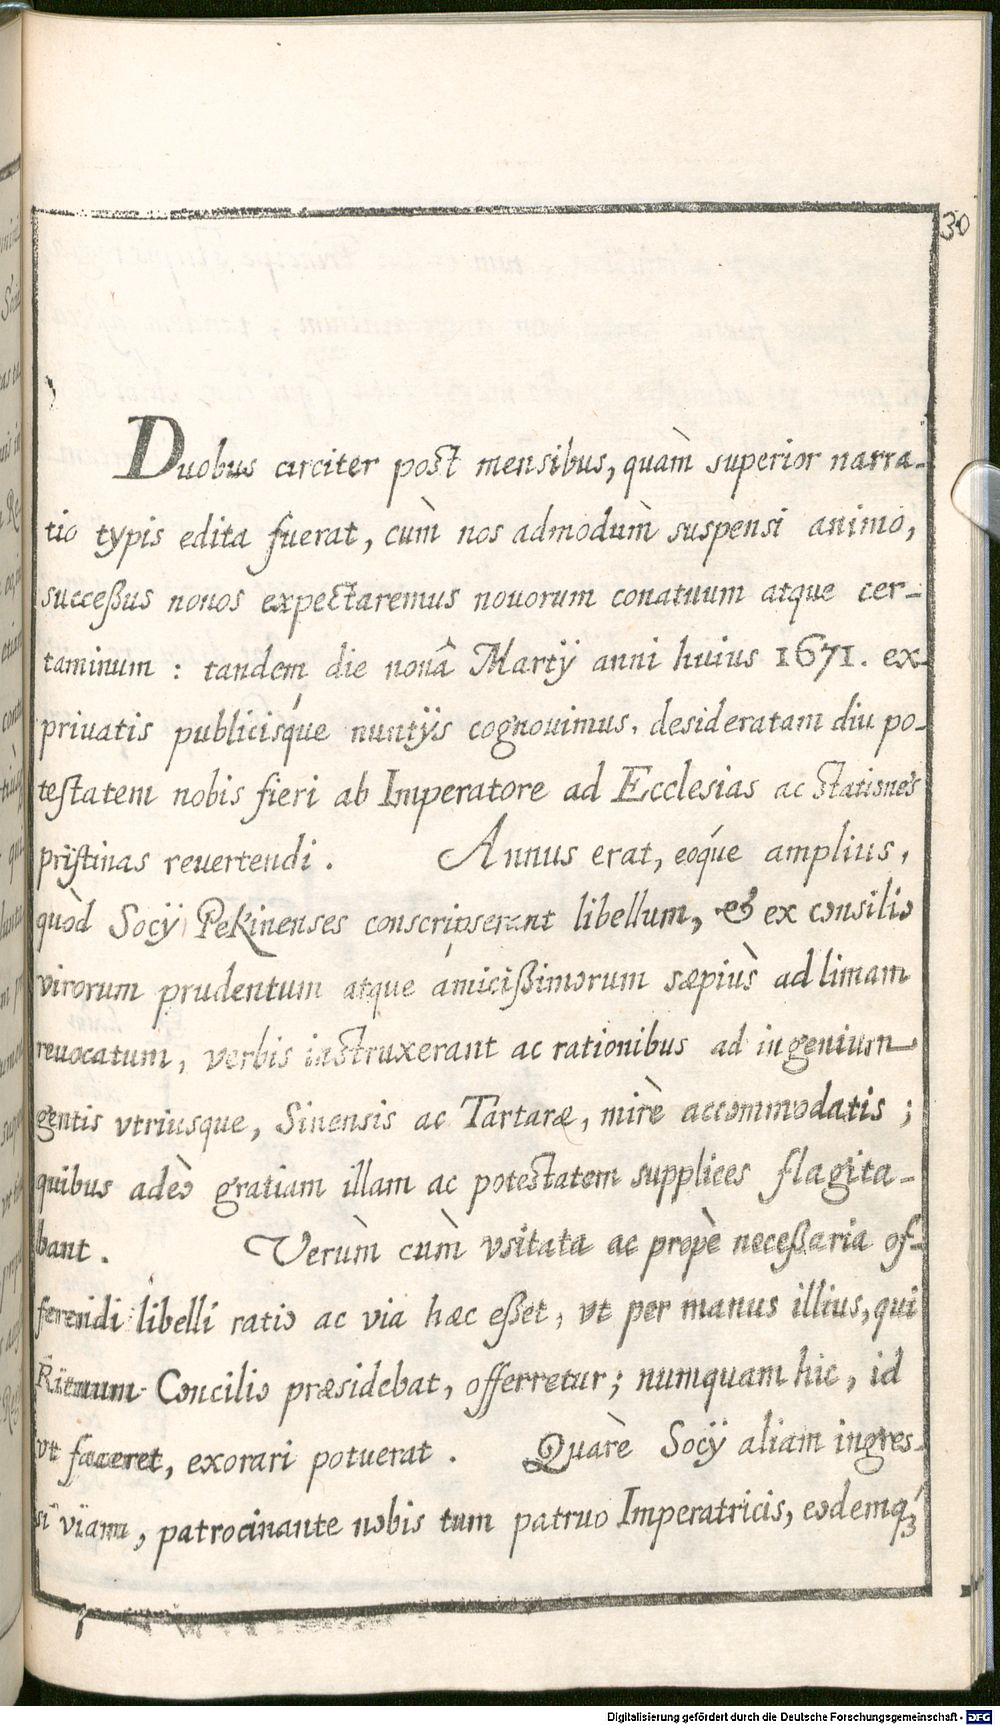 30
Duobus circiter post mensibus, quàm superior narra-
tio typis edita fuerat, cùm nos admodùm suspensi animo,
succeßus nouos expectaremus nouorum conatuum atque cer-
taminum : tandem die nonâ Martÿ anni huius 1671. ex
priuatis publicisq́ue nuntÿs cognouimus, desideratam diu po-
testatem nobis fieri ab Imperatore ad Ecclesias ac stationes
pristinas reuertendi . Annus erat, eoq́ue amplius,
quòd Socÿ Pekinenses conscripserant libellum, & ex consilio
virorum prudentum atque amicißimorum sæpiùs ad limam
reuocatum, verbis instruxerant ac rationibus ad ingenium
gentis vtriusque, Sinensis ac Tartaræ, mirè accommodatis ;
quibus adeò gratiam illam ac potestatem supplices flagita-
bant . Verùm cùm vsitata ac propè neceßaria of-
ferendi libelli ratio ac via hæc eßet, vt per manus illius, qui
Rituum Concilio præsidebat, offerretur ; numquam hic, id
vt faceret, exorari potuerat . Quarè Socÿ aliam ingres-
si viam, patrocinante nobis tum patruo Imperatricis, eodemq́ꝫ
Digitalisierung gefördert durch die Deutsche Forschungsgemeinschaft - DFG